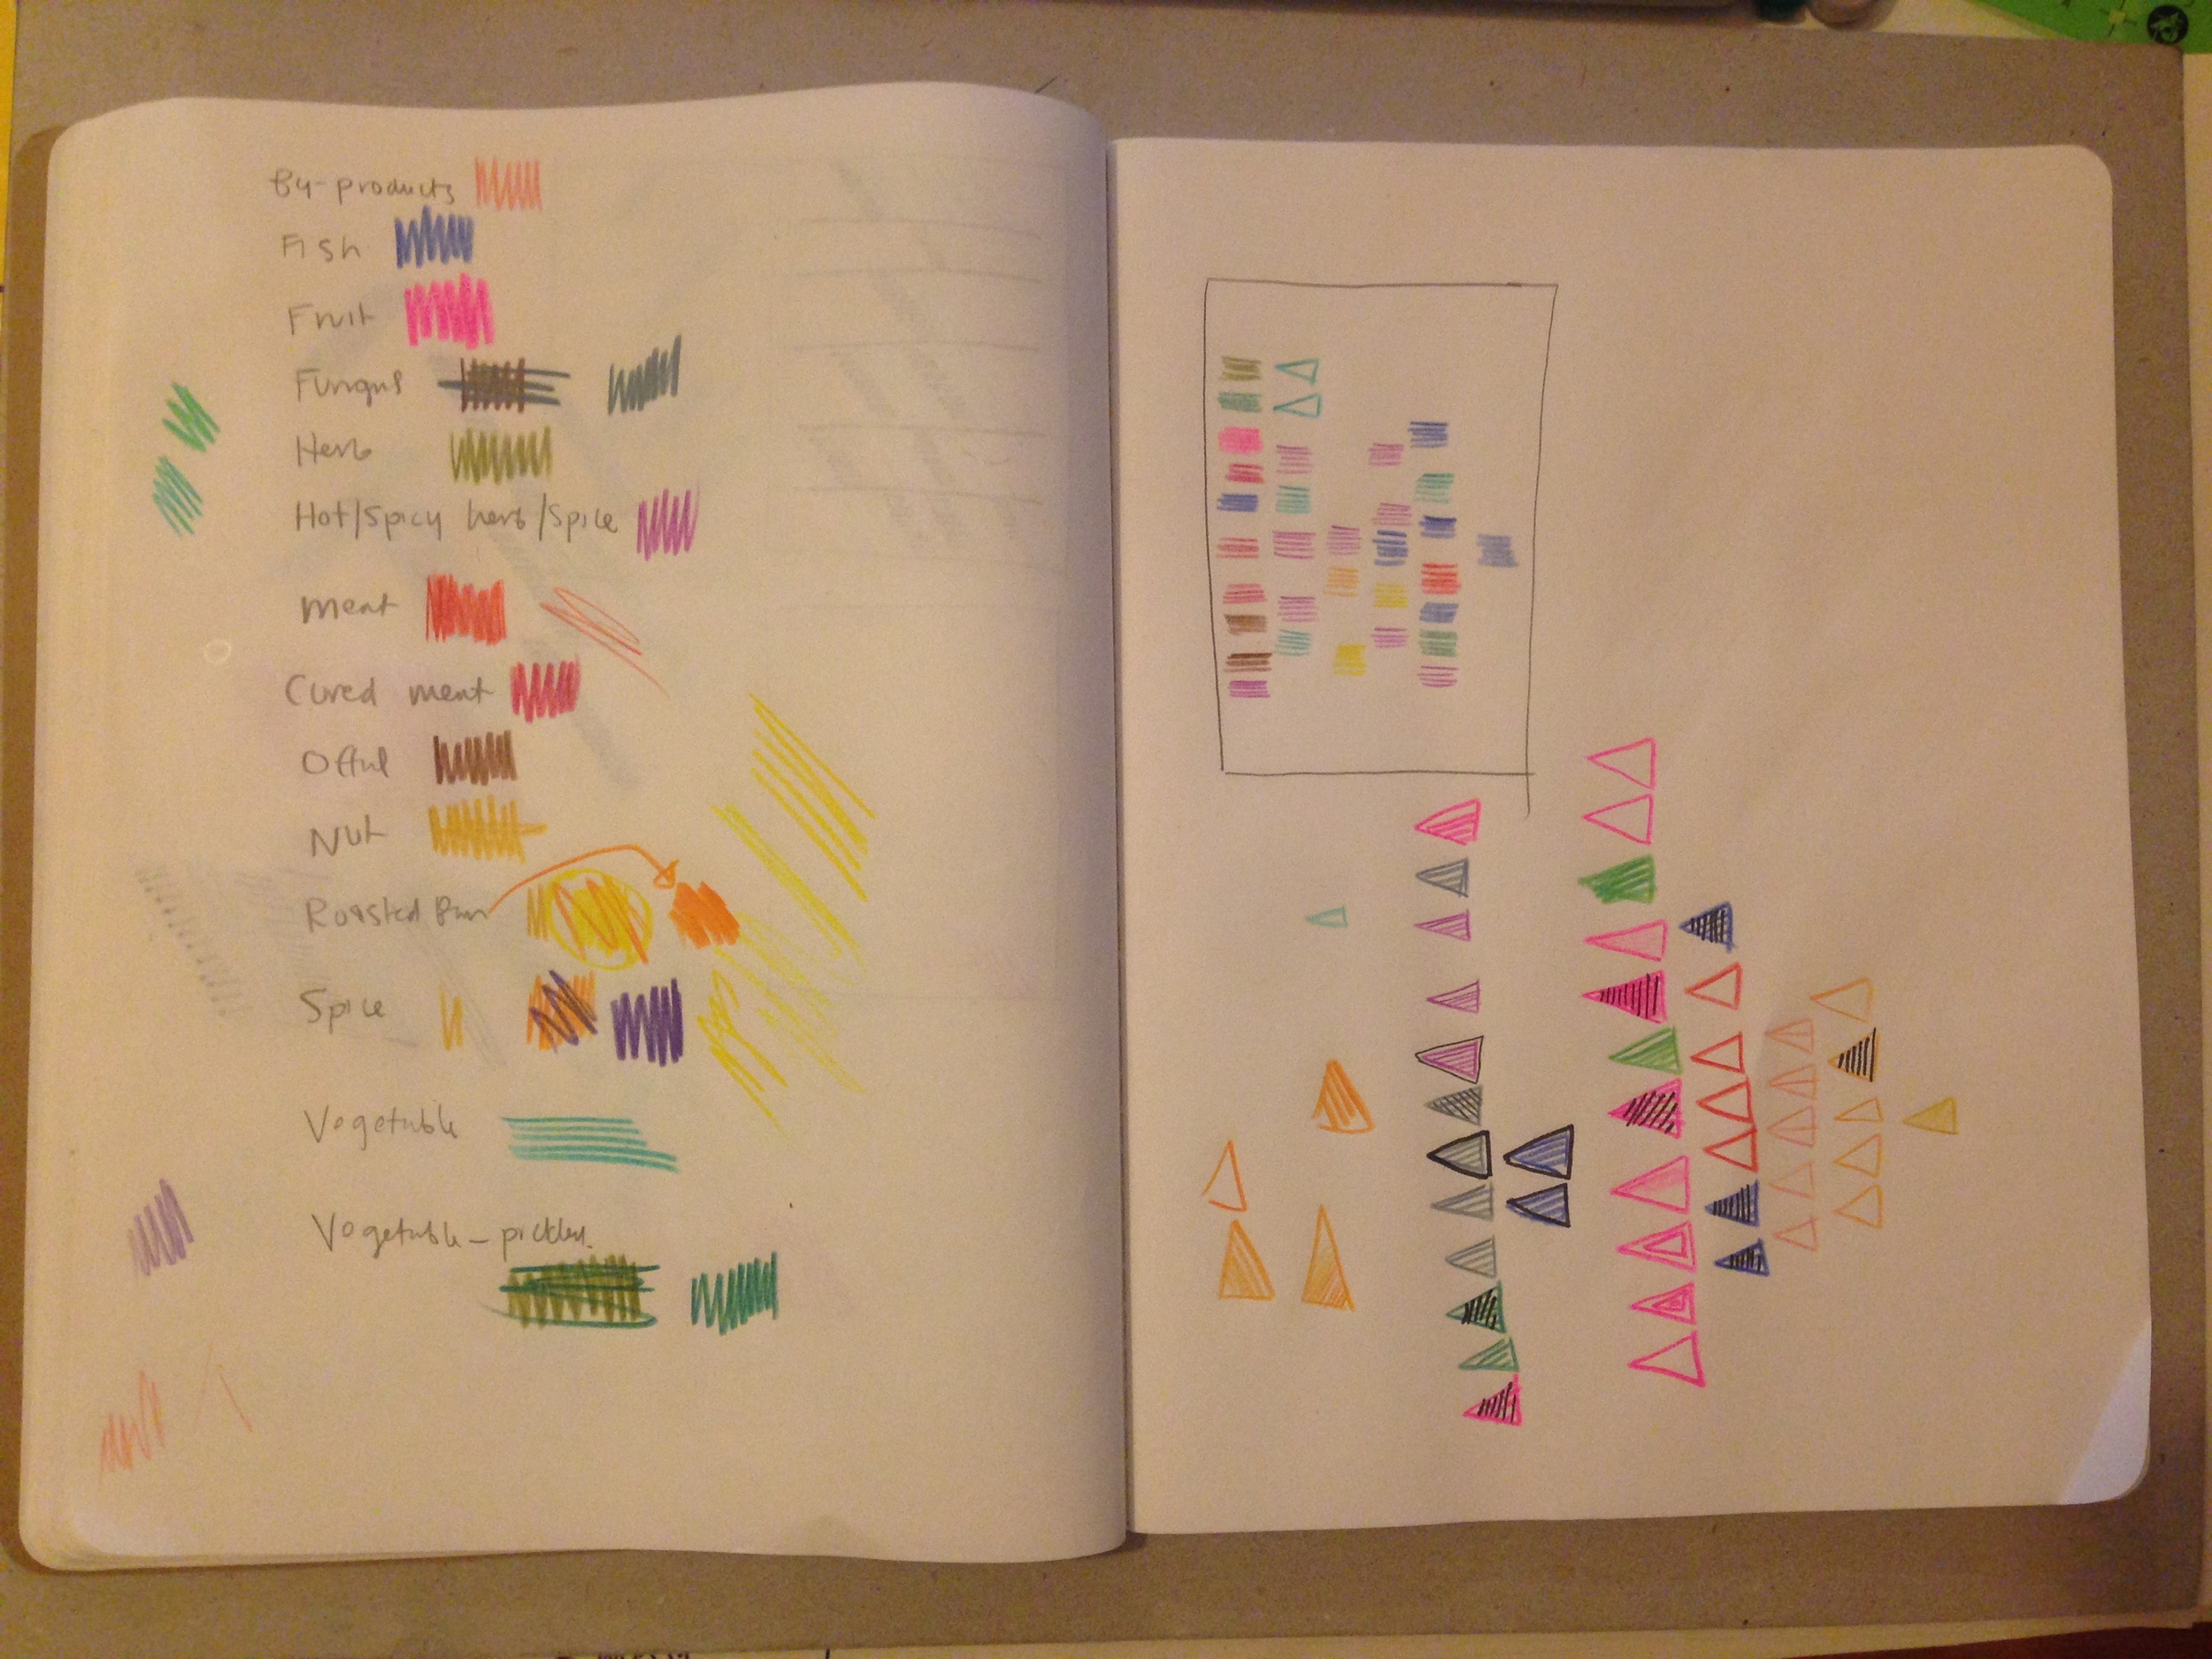 By-products
Fish
Fruit
Fungus
Herb
Hot/Spicy herb/Spice
meat
Cured meat
Offul
Nut
Roasted
Spice
Vegetable
Vegetable - pickled